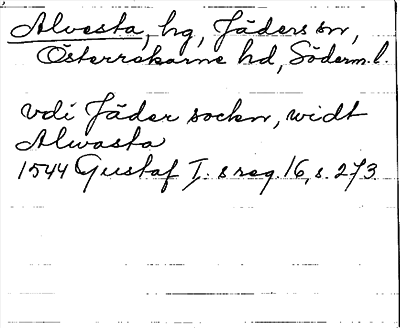 Alvesta, hg, Jäders sn,
Österrekarne hd, Söderm. l.
vdi Jäder sockn, widt
Alwasta
1544 Gustaf I. s reg. 16, s. 273